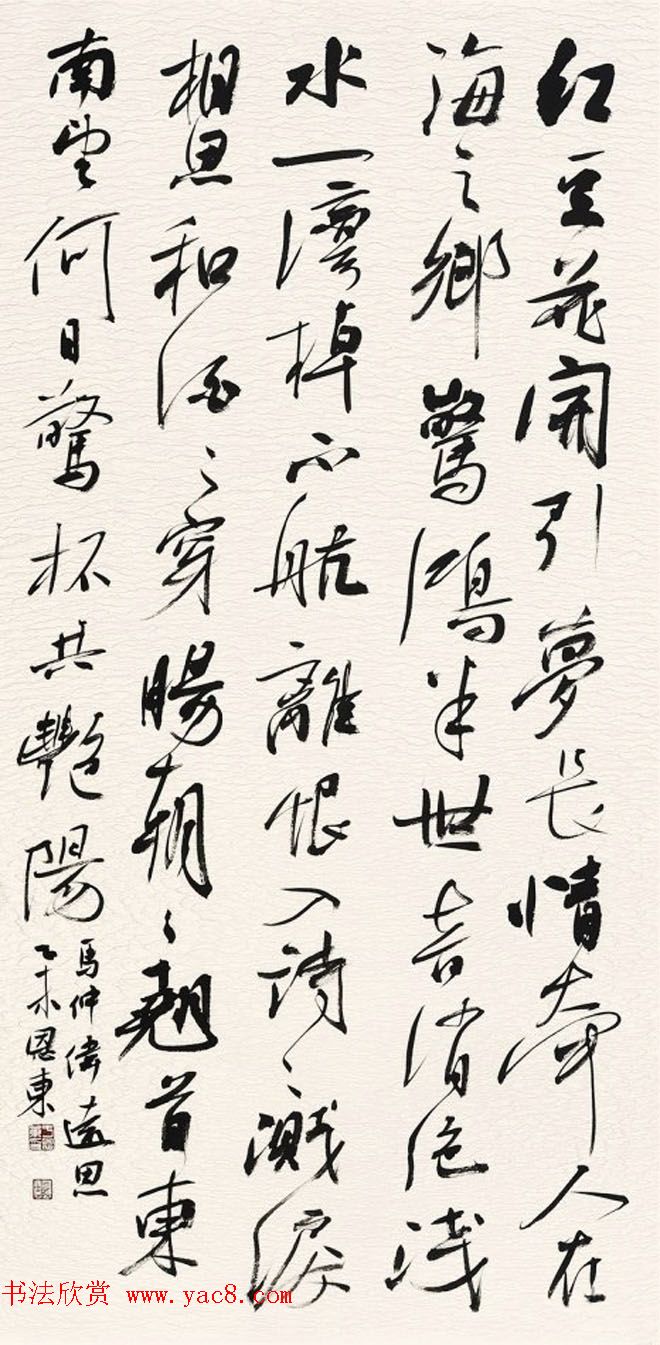 红豆花开引梦长情牵人在
海之乡惊鸿半世音消绝浅
水一湾棹不航离恨入诗诗溅泪
相思和酒酒穿肠朝朝翘首东
南望何日惊杯共艳阳
马仲伟远思
乙未恩东
书法欣赏 www.yac8.com